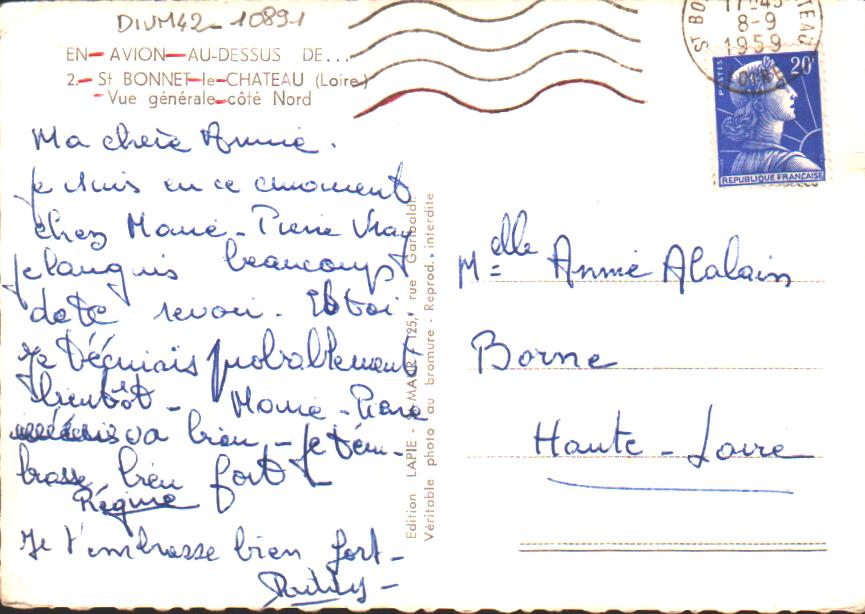 DIVM42-10891
EN AVION AU-DESSUS DE...
2. - St BONNET-le-CHATEAU (Loire)
Vue générale côté Nord
Ma chère Annie.
Je suis en ce moment
chez Marie-Pierre
je languis beaucoup
de te revoir. Et toi.
Je t'écrirais probablement
bientôt - Marie-Pierre
va bien, - Je t'em-
brasse bien fort -
Régine
Je t'embrasse bien fort -
Edition LAPIE - St-MAUR, 125, rue Garibaldi.
Véritable photo au bromure - Reprod. interdite
17-45
8-9
1959
LOIRE
POSTES
20F
REPUBLIQUE FRANÇAISE
Melle Annie Alalain
Borne
Haute-Loire